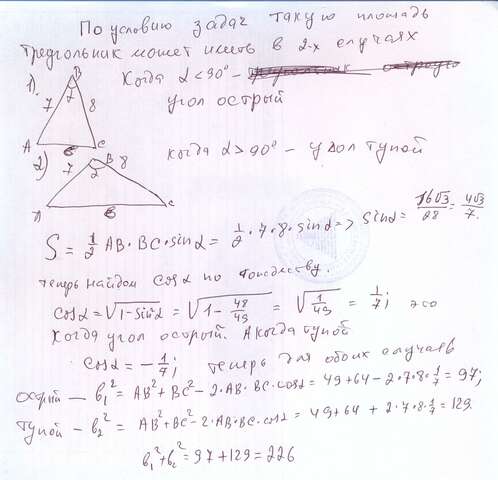 По условию задач такую площадь
треугольник может иметь в 2-х случаях
1). Когда α < 90° –
угол острый
B
7 8
A C
2) когда α > 90° – угол тупой
7 B 8
α
A в C
S = 1/2 AB·BC·sinα = 1/2·7·8·sinα => sinα = 16√3/28 = 4√3/7.
теперь найдем cosα по тождеству.
cosα = √1-sin²α = √1-48/49 = √1/49 = 1/7; это
когда угол острый. А когда тупой
cosα = -1/7; теперь для обоих случаев
острый – в₁² = AB²+BC²-2·AB·BC·cosα = 49+64-2·7·8·1/7 = 97;
тупой – в₂² = AB²+BC²-2·AB·BC·cosα = 49+64+2·7·8·1/7 = 129.
в₁²+в₂² = 97+129 = 226